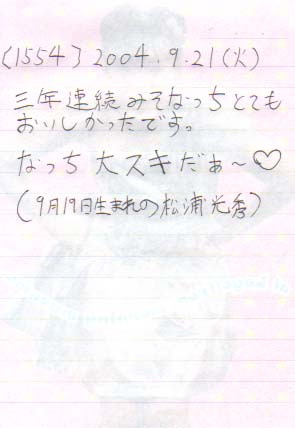 〔1554〕2004.9.21(火)
三年連続みそなっちとても
おいしかったです。
なっち大スキだぁ～♡
(9月19日生まれの松浦光秀)